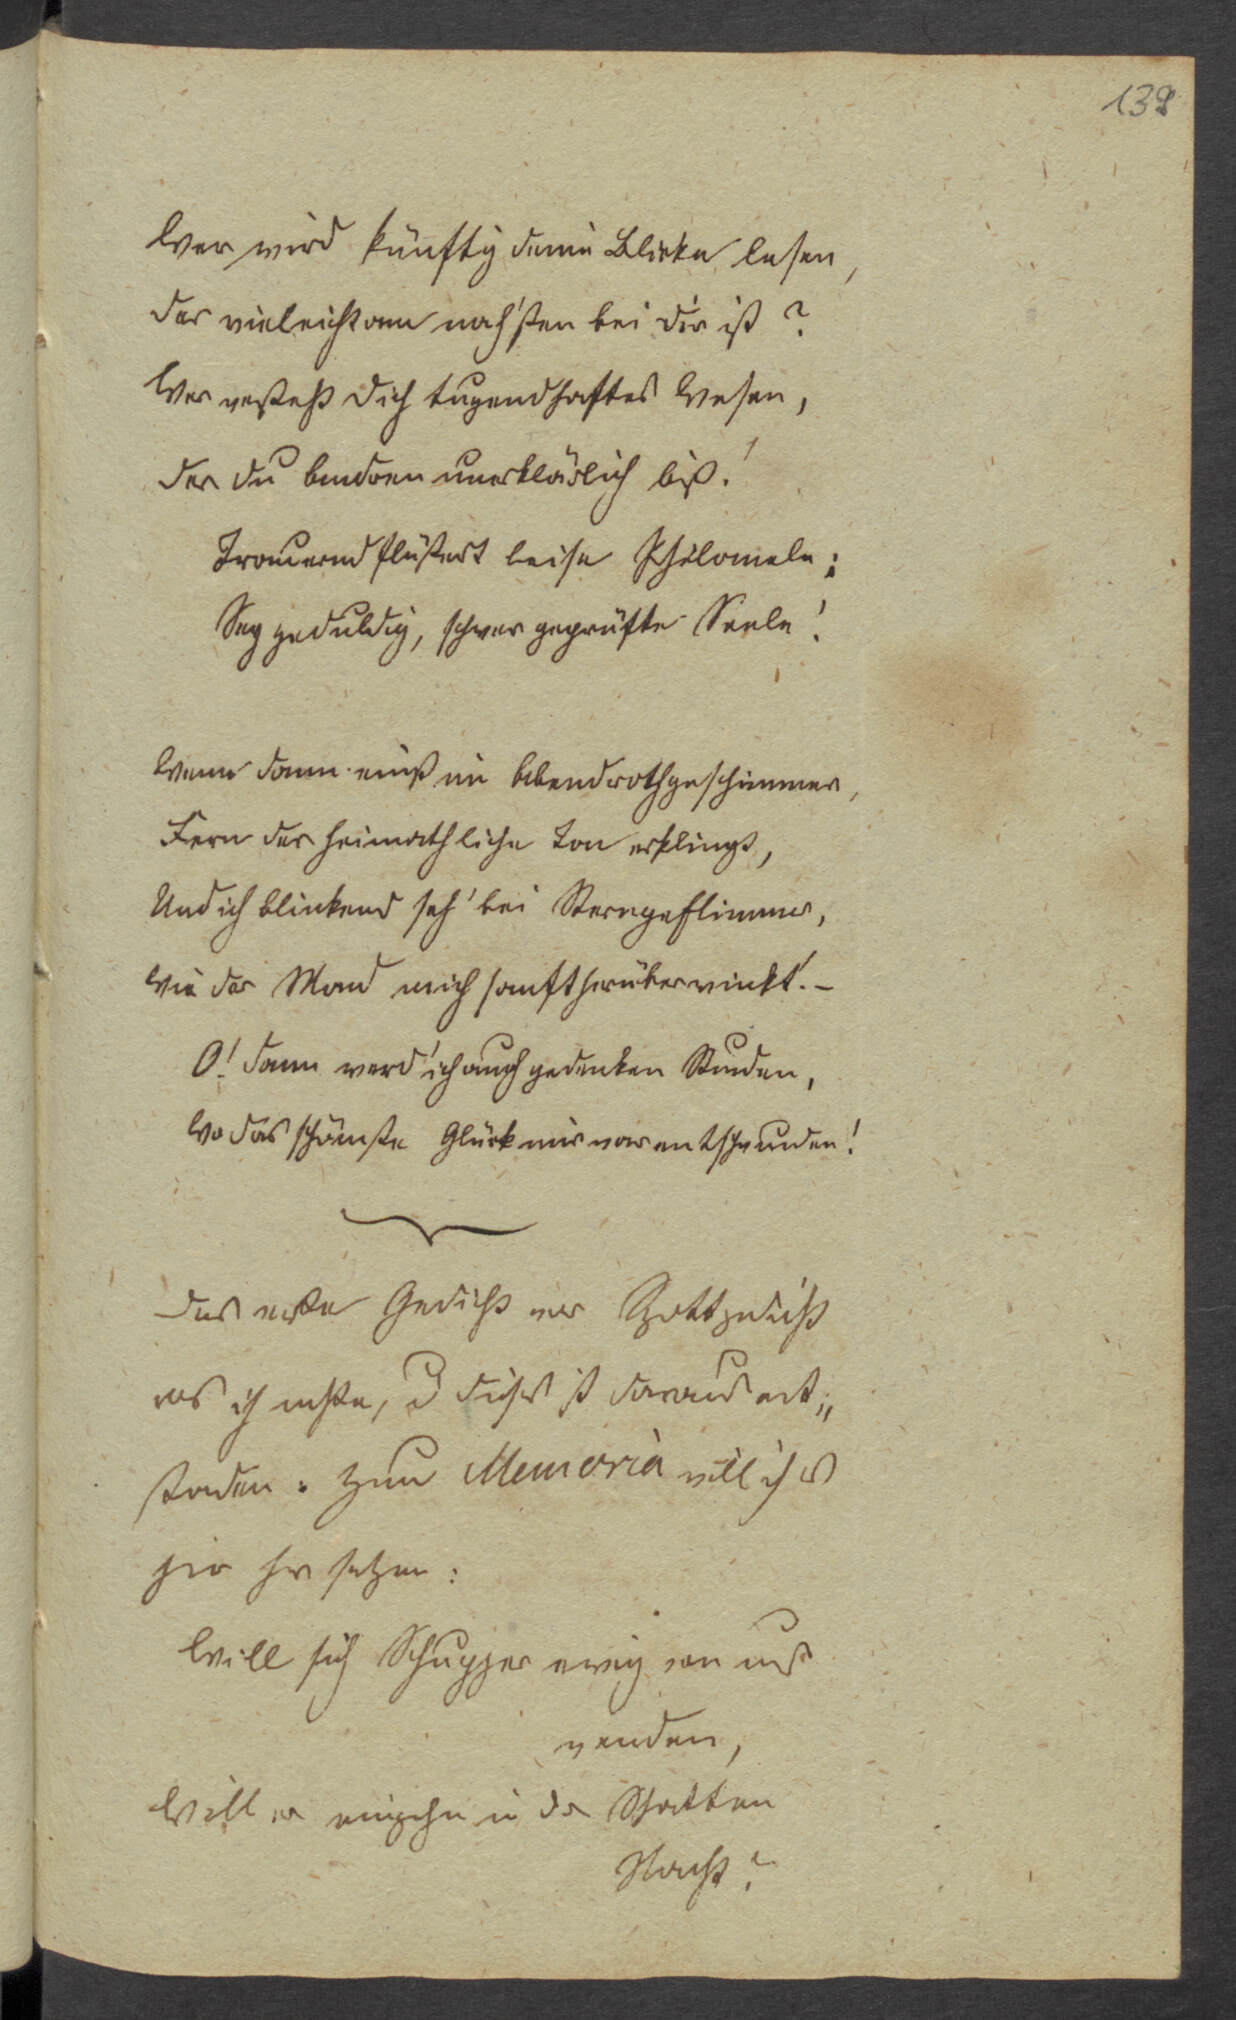 139
Wer wird künftig deine Blicke lesen,
der vieleicht am nach'sten bei dir ist?
Wer versteht dich tugendhaftes Wesen,
der du andren unerklärlich bist!
Trauernd flüstert leise Philomele:
Sey geduldig, schwer geprüfte Seele!
Wenn dann einst im Abendrothgeschimmer,
Fern der heimathliche Ton erklingt,
Und ich blinkend seh' bei Sterngeflimmer,
Wie der Mond mich sanft herüber winkt! –
O! dann werd' ich auch gedenken Stunden,
Wo das schönste Glück mir war entschwunden!
Das erste Gedicht war Spottgedicht
was ich machte, u dieses ist daraus ent„
standen. Zum Memoria will ichs
hier her setzen:
Will sich Schugger ewig von uns
wenden,
Will er eingehn in der Schatten
Nacht?